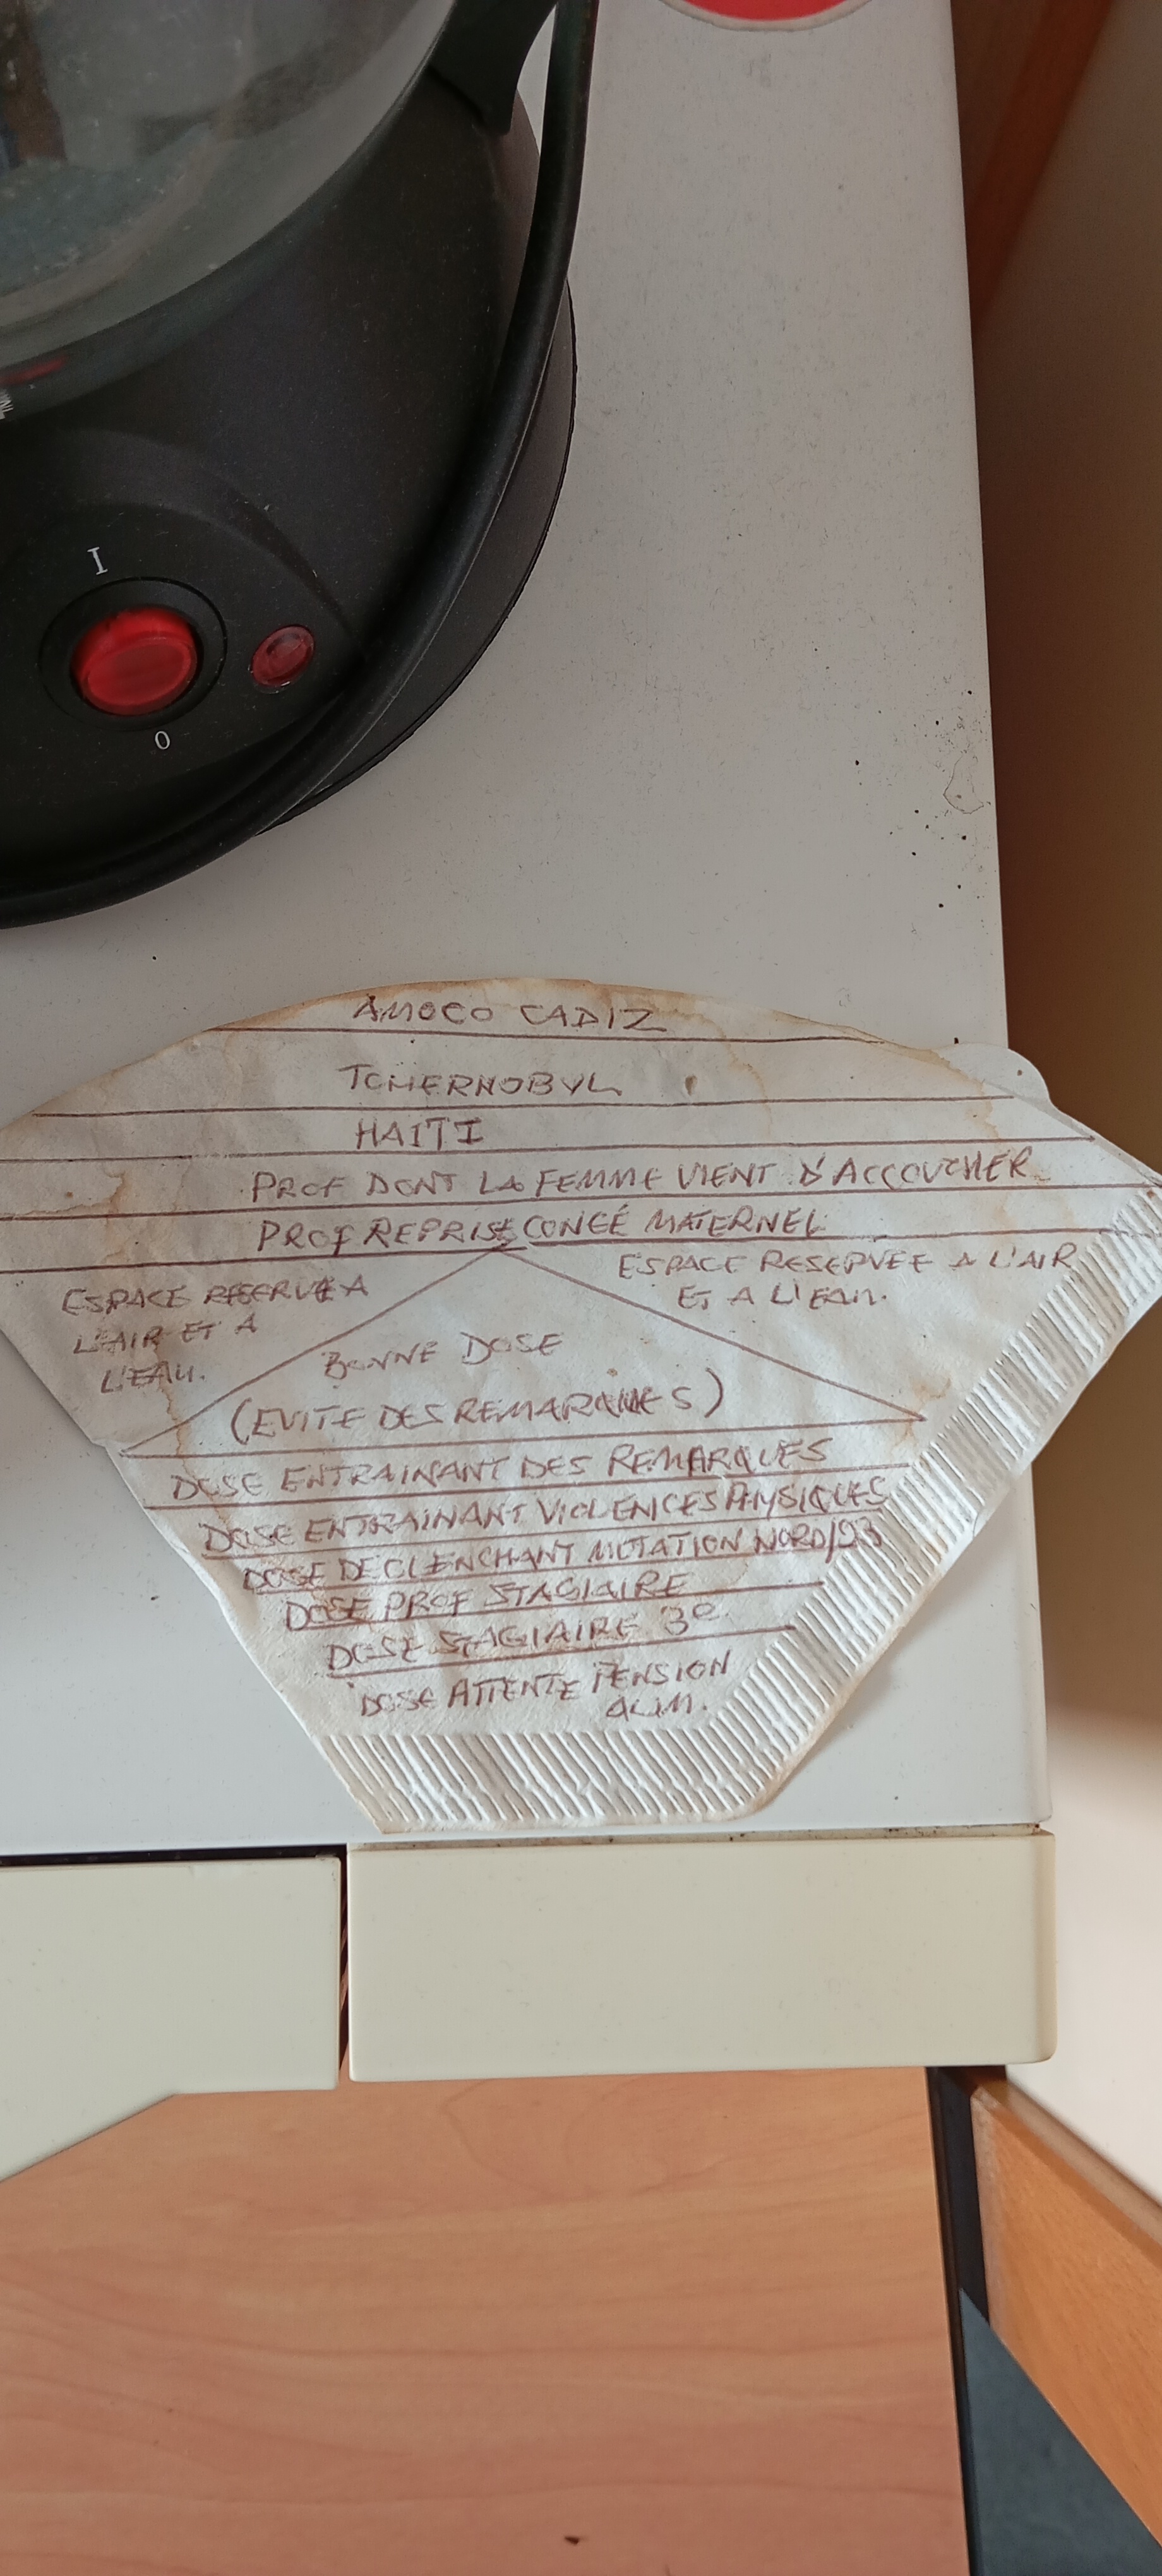 I
0
AMOCO CADIZ
TCHERNOBYL
HAITI
PROF DONT LA FEMME VIENT D'ACCOUCHER
PROF REPRISE CONGÉ MATERNEL
ESPACE RESERVE A
L'AIR ET A
L'EAU.
ESPACE RESERVEE A L'AIR
ET A L'EAU.
BONNE DOSE
(EVITE DES REMARQUES)
DOSE ENTRAINANT DES REMARQUES
DOSE ENTRAINANT VIOLENCES PHYSIQUES
DOSE DECLENCHANT MUTATION NORD/93
DOSE PROF STAGIAIRE
DOSE STAGIAIRE 3e
DOSE ATTENTE PENSION
ALIM.